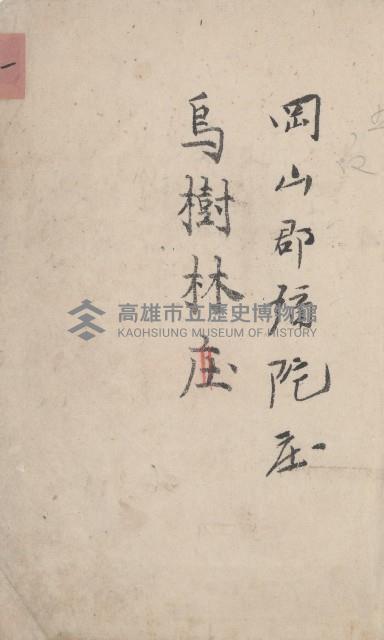 岡山郡彌陀庄
烏樹林庄
一
高雄市立歷史博物館
KAOHSIUNG MUSEUM OF HISTORY